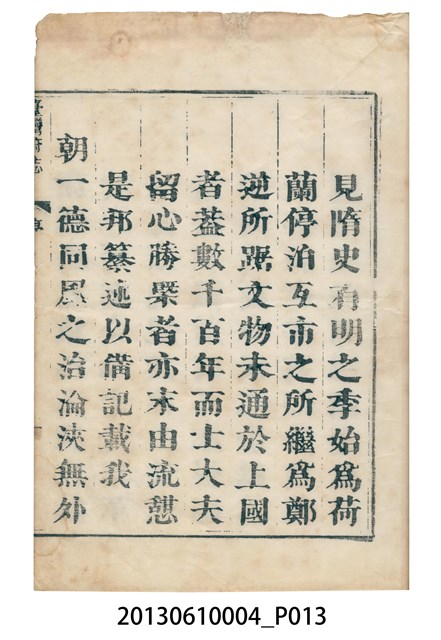 見隋史有明之季始爲荷
蘭停泊互市之所繼爲鄭
逆所踞文物未通於上國
者蓋數千百年而士大夫
留心勝槩者亦末由流憇
是邦纂述以備記載我
朝一德同風之治淪浹無外
臺灣府志
序
20130610004_P013